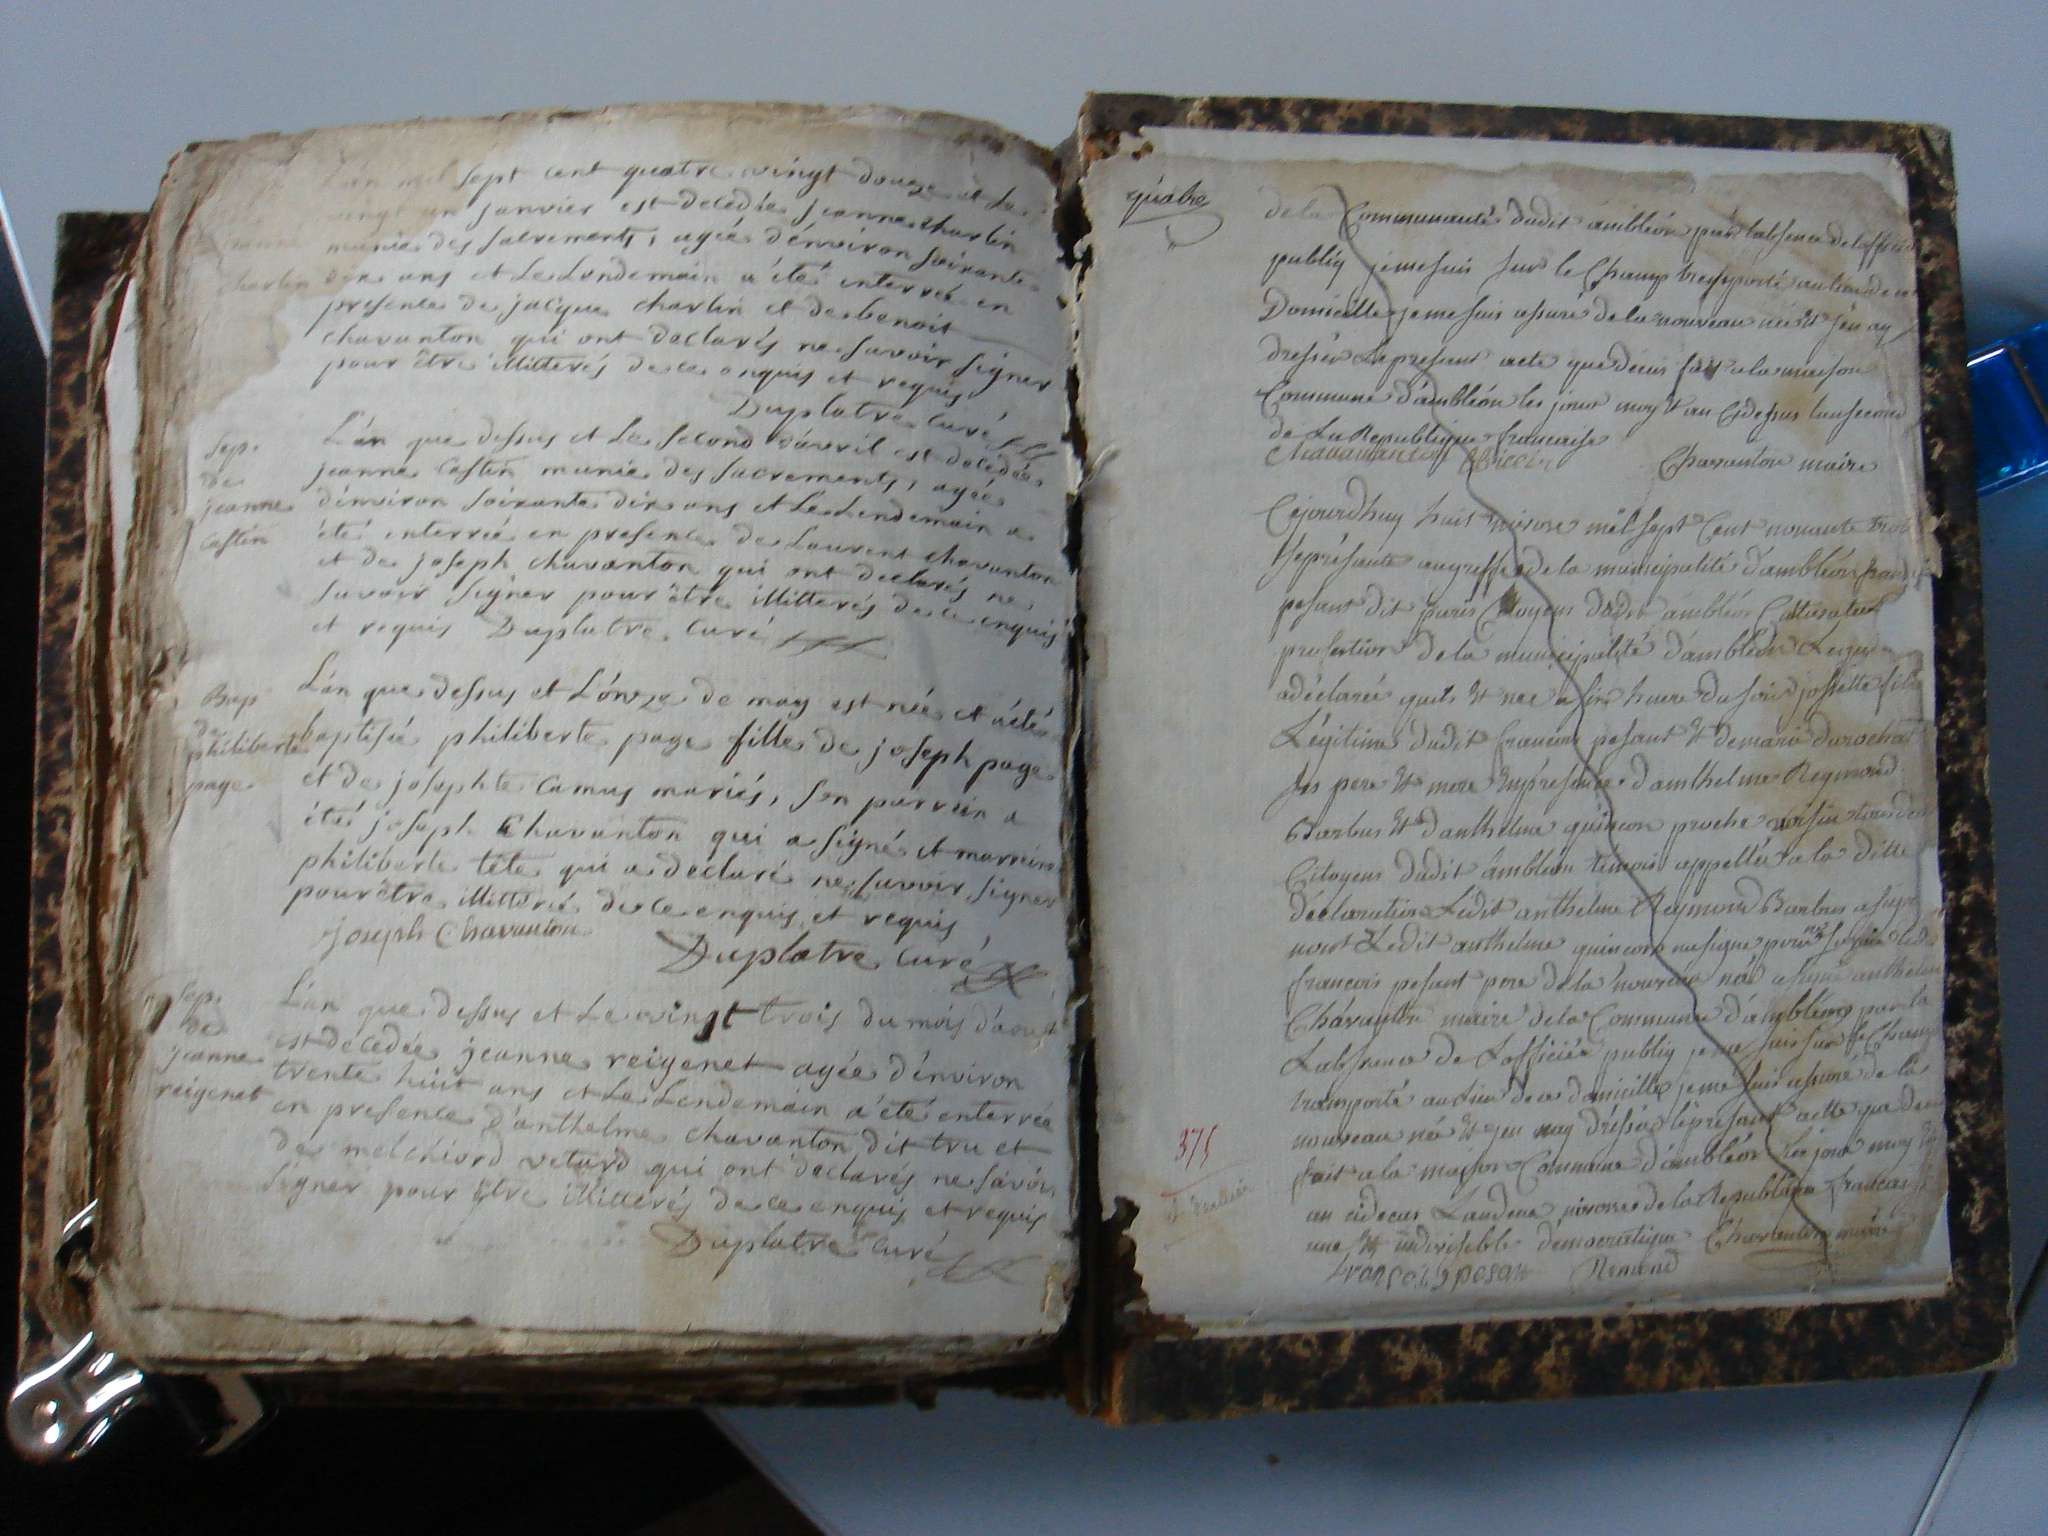 L'an mil sept cent quatre vingt douze et le
vingt un janvier est decedée jeanne charlin
munie des sacrements, agée d'énviron soixante
charlin
dix ans et le Lendemain a été enterrée en
presence de jacque charlin et de benoit
chavanton qui ont declarés ne savoir signer
pour être illitterés de ce enquis et requis
Duplatre curé
Sep.
de
jeanne
castin
L'an que dessus et le second d'avril est decedée
jeanne castin munie des sacrements, agée
d'énviron soixante dix ans et Le Lendemain a
été enterrée en presence de Laurent chavanton
et de joseph chavanton qui ont declarés ne
savoir signer pour être illitterés de ce enquis
et requis Duplatre curé
Bap
de
philiberte
page
L'an que dessus et L'onze de may est née et a été
baptisée philiberte page fille de joseph page
et de josephte camus mariés, son parrein a
été joseph Chavanton qui a signé et marreine
philiberte tête qui a declaré ne savoir signer
pour être illitterée de ce enquis et requis
joseph Chavanton
Duplatre curé
Sep.
de
jeanne
reigenet
L'an que dessus et Le vingt trois du mois d'aoust
est decedée jeanne reigenet agée d'énviron
trente huit ans et Le Lendemain a été enterrée
en presence d'anthelme chavanton dit tru et
de melchiord veturd qui ont declarés ne savoir
signer pour être illitterés de ce enquis et requis
Duplatre curé
quatre
de la Communauté dudit ambléon par labsence de lofficier
publiq je me suis sur le Champ transporté au lieu de ce
Domicille je me suis assuré de la nouveau née et jen ay
dressér le présent acte que dessus fait a la maison
Commune d'ambléon les jour moy et an cy dessus lan second
de La Republique francaise
Chavanton maire
Cejourdhuy huit nivose mil sept Cent nonante trois
sest présanté au greffe de la municipalité d'ambléon françois
pesant dit paris Citoyens dudit ambléon Cultivateur
profession de la municipalité d'ambléon Lequel
a déclarée quil et née a six heure du soir josette fille
Légitime dudit francois pesant et de marie durochat
ses pere et mere en présence d'anthelme Reymond
Barbus et d'anthelme quincon proche voisin tous deux
Citoyens dudit ambléon témoin appellée a la ditte
déclaration Ledit anthelme Reymond Barbus a signé
non Ledit anthelme quincon na signé pour ne savoir ledit
francois pesant pere de la nouveau née a signé anthelme
Chavanton maire de la Commune d'ambléon par la
Labsence de Lofficiée publiq je me suis sur le Champ
transporté au lieu de ce domicille je me suis assuré de la
nouveau née et jen nay dréssée le présent acte que dessus
fait a la maison Commune d'ambléon les jour moy et
an cidesus Landeux nivose de la Republique francaise
une et indivisible démocratique Chavanton maire
françois pesant Remond
375